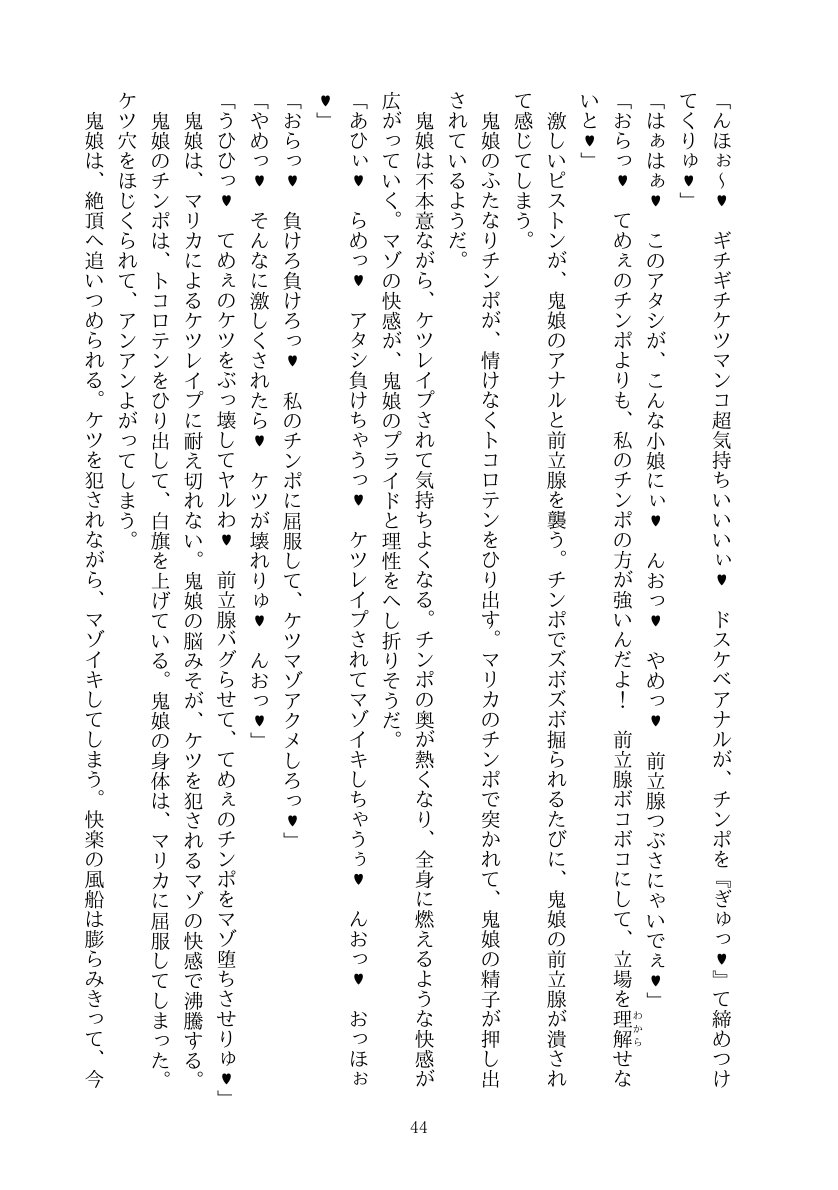 「んほぉ～♥　ギチギチケツマンコ超気持ちいいいぃ♥　ドスケベアナルが、チンポを『ぎゅっ♥』て締めつけ
てくりゅ♥」
「はぁはぁ♥　このアタシが、こんな小娘にぃ♥　んおっ♥　やめっ♥　前立腺つぶさにゃいでぇ♥」
「おらっ♥　てめぇのチンポよりも、私のチンポの方が強いんだよ！　前立腺ボコボコにして、立場を理解わからせな
いと♥」
　激しいピストンが、鬼娘のアナルと前立腺を襲う。チンポでズボズボ掘られるたびに、鬼娘の前立腺が潰され
て感じてしまう。
　鬼娘のふたなりチンポが、情けなくトコロテンをひり出す。マリカのチンポで突かれて、鬼娘の精子が押し出
されているようだ。
　鬼娘は不本意ながら、ケツレイプされて気持ちよくなる。チンポの奥が熱くなり、全身に燃えるような快感が
広がっていく。マゾの快感が、鬼娘のプライドと理性をへし折りそうだ。
「あひぃ♥　らめっ♥　アタシ負けちゃうっ♥　ケツレイプされてマゾイキしちゃうぅ♥　んおっ♥　おっほぉ
♥」
「おらっ♥　負けろ負けろっ♥　私のチンポに屈服して、ケツマゾアクメしろっ♥」
「やめっ♥　そんなに激しくされたら♥　ケツが壊れりゅ♥　んおっ♥」
「うひひっ♥　てめぇのケツをぶっ壊してヤルわ♥　前立腺バグらせて、てめぇのチンポをマゾ堕ちさせりゅ♥」
　鬼娘は、マリカによるケツレイプに耐え切れない。鬼娘の脳みそが、ケツを犯されるマゾの快感で沸騰する。
　鬼娘のチンポは、トコロテンをひり出して、白旗を上げている。鬼娘の身体は、マリカに屈服してしまった。
ケツ穴をほじくられて、アンアンよがってしまう。
　鬼娘は、絶頂へ追いつめられる。ケツを犯されながら、マゾイキしてしまう。快楽の風船は膨らみきって、今
44